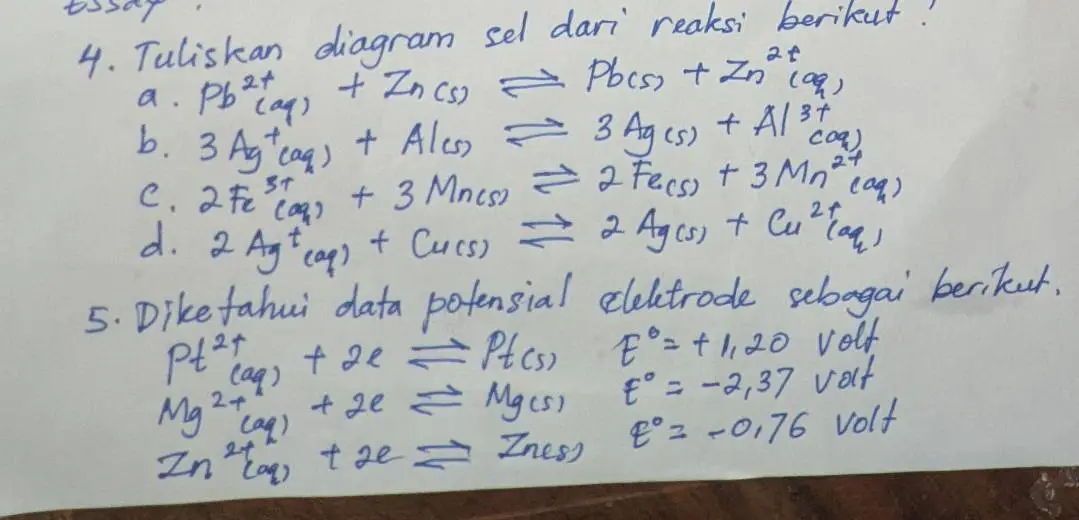 Essay
4. Tuliskan diagram sel dari reaksi berikut!
a. Pb²⁺(aq) + Zn(s) ⇌ Pb(s) + Zn²⁺(aq)
b. 3 Ag⁺(aq) + Al(s) ⇌ 3 Ag(s) + Al³⁺(aq)
c. 2 Fe³⁺(aq) + 3 Mn(s) ⇌ 2 Fe(s) + 3 Mn²⁺(aq)
d. 2 Ag⁺(aq) + Cu(s) ⇌ 2 Ag(s) + Cu²⁺(aq)
5. Diketahui data potensial elektrode sebagai berikut.
Pt²⁺(aq) + 2e ⇌ Pt(s) E° = +1,20 volt
Mg²⁺(aq) + 2e ⇌ Mg(s) E° = -2,37 volt
Zn²⁺(aq) + 2e ⇌ Zn(s) E° = -0,76 volt